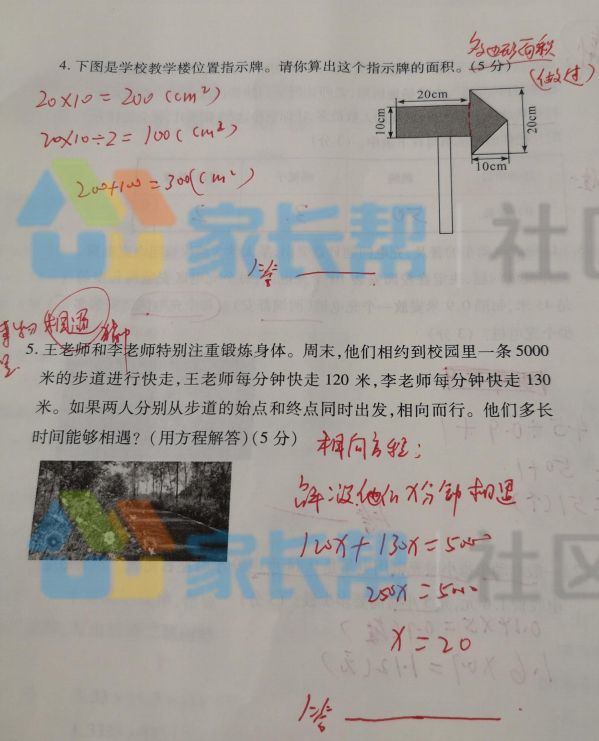 多边形面积
4. 下图是学校教学楼位置指示牌。请你算出这个指示牌的面积。(5分)
(做过)
20×10=200(cm²)
20cm
10cm
20cm
20×10÷2=100(cm²)
10cm
200+100=300(cm²)
家长帮 社区
答
相遇
5. 王老师和李老师特别注重锻炼身体。周末,他们相约到校园里一条5000
米的步道进行快走,王老师每分钟快走120米,李老师每分钟快走130
米。如果两人分别从步道的始点和终点同时出发,相向而行。他们多长
时间能够相遇?(用方程解答)(5分)
相向方程:
解:设他们X分钟相遇
120X+130X=5000
家长帮 社区
250X=5000
X=20
答